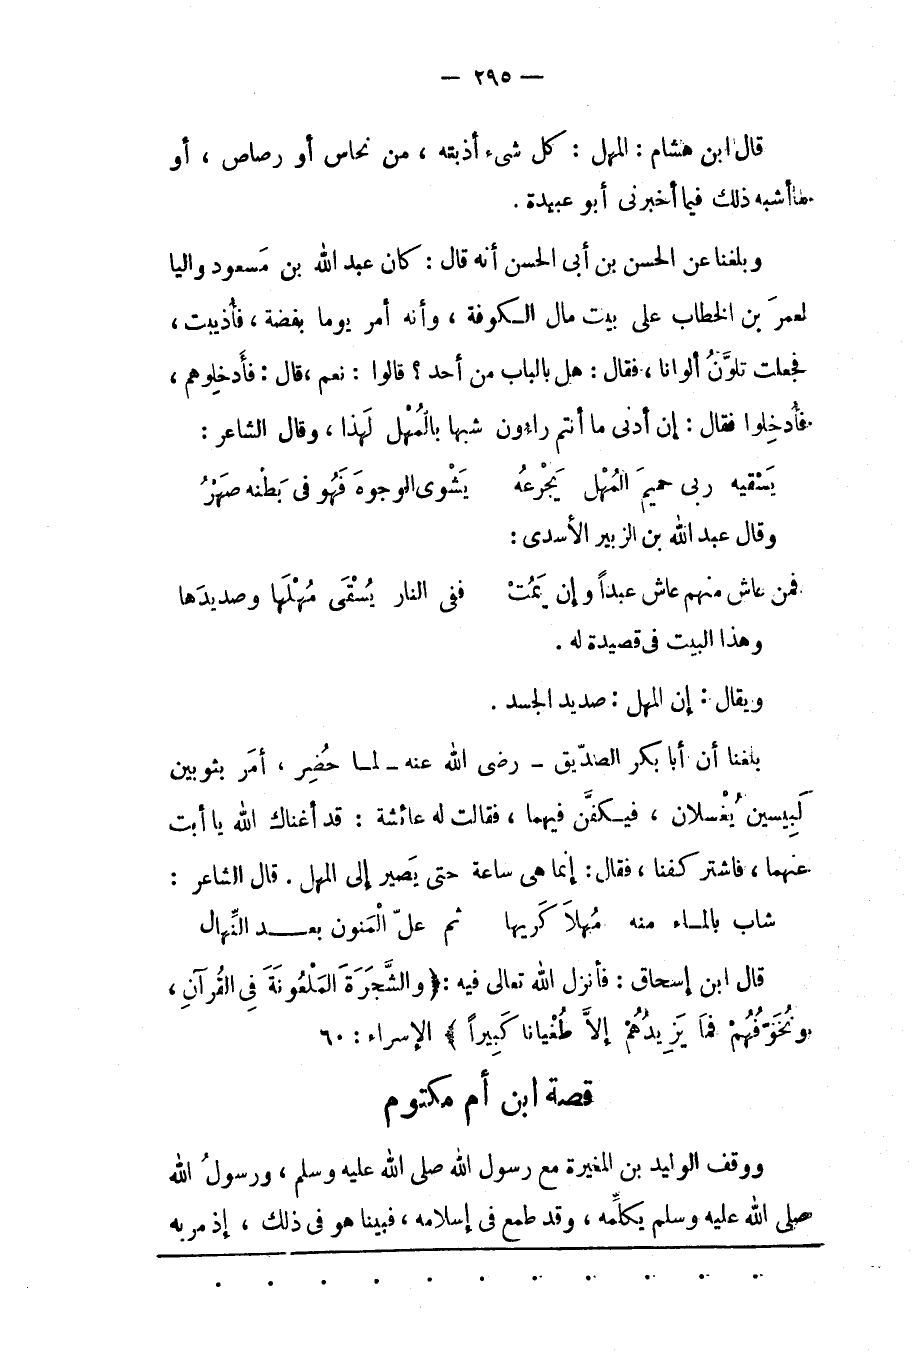 — ٢٩٥ —
قال ابن هشام : المهل : كل شىء أذبته ، من نحاس أو رصاص ، أو
ما أشبه ذلك فيما أخبرنى أبو عبيدة .
وبلغنا عن الحسن بن أبى الحسن أنه قال : كان عبد الله بن مَسعود واليا
لعمرَ بن الخطاب على بيت مال الكوفة ، وأنه أمر يوما بفضة ، فأُذيبت ،
فجعلت تلوَّنُ ألوانا ، فقال : هل بالباب من أحد ؟ قالوا : نعم ، قال : فأَدخلوهم ،
فأُدخِلوا فقال : إن أدنى ما أنتم راءون شبها بالمُهْل لَهذا ، وقال الشاعر :
يَسْقيه ربى حميمَ المُهْل يَجْرعُه يَشْوى الوجوهَ فَهُو فى بَطْنه صهَرْ
وقال عبد الله بن الزبير الأسدى :
فمن عاش منهم عاش عبداً وإن يَمُتْ ففى النار يُسْقَى مُهْلَها وصديدَها
وهذا البيت فى قصيدة له .
ويقال : إن المهل : صديد الجسد .
بلغنا أن أبا بكر الصدّيق – رضى الله عنه – لما حُضِر ، أمَر بثوبين
لَبِيسين يُغْسلان ، فيكفَّن فيهما ، فقالت له عائشة : قد أغناك الله يا أبت
عنهما ، فاشتر كفنا ، فقال : إنما هى ساعة حتى يَصير إلى المهل . قال الشاعر :
شاب بالماء منه مُهلاً كَريها ثم علّ الْمَنون بعد النِّهال
قال ابن إسحاق : فأنزل الله تعالى فيه : ﴿ والشَّجَرَةَ المَلْعُونَةَ فِى القُرآنِ ،
ونُخَوِّفُهُمْ فمَا يَزِيدُهُمْ إلاَّ طُغْيانا كَبِيراً ﴾ الإسراء : ٦٠
قصة ابن أم مكتوم
ووقف الوليد بن المغيرة مع رسول الله صلى الله عليه وسلم ، ورسولُ الله
صلى الله عليه وسلم يكلِّمه ، وقد طمع فى إسلامه ، فبينا هو فى ذلك ، إذ مر به